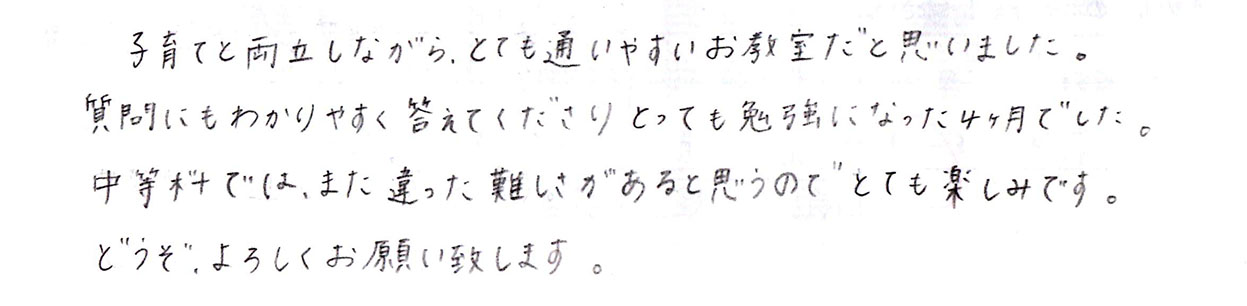 子育てと両立しながら、とても通いやすいお教室だと思いました。
質問にもわかりやすく答えてくださりとっても勉強になった4ヶ月でした。
中等科では、また違った難しさがあると思うのでとても楽しみです。
どうぞ、よろしくお願い致します。